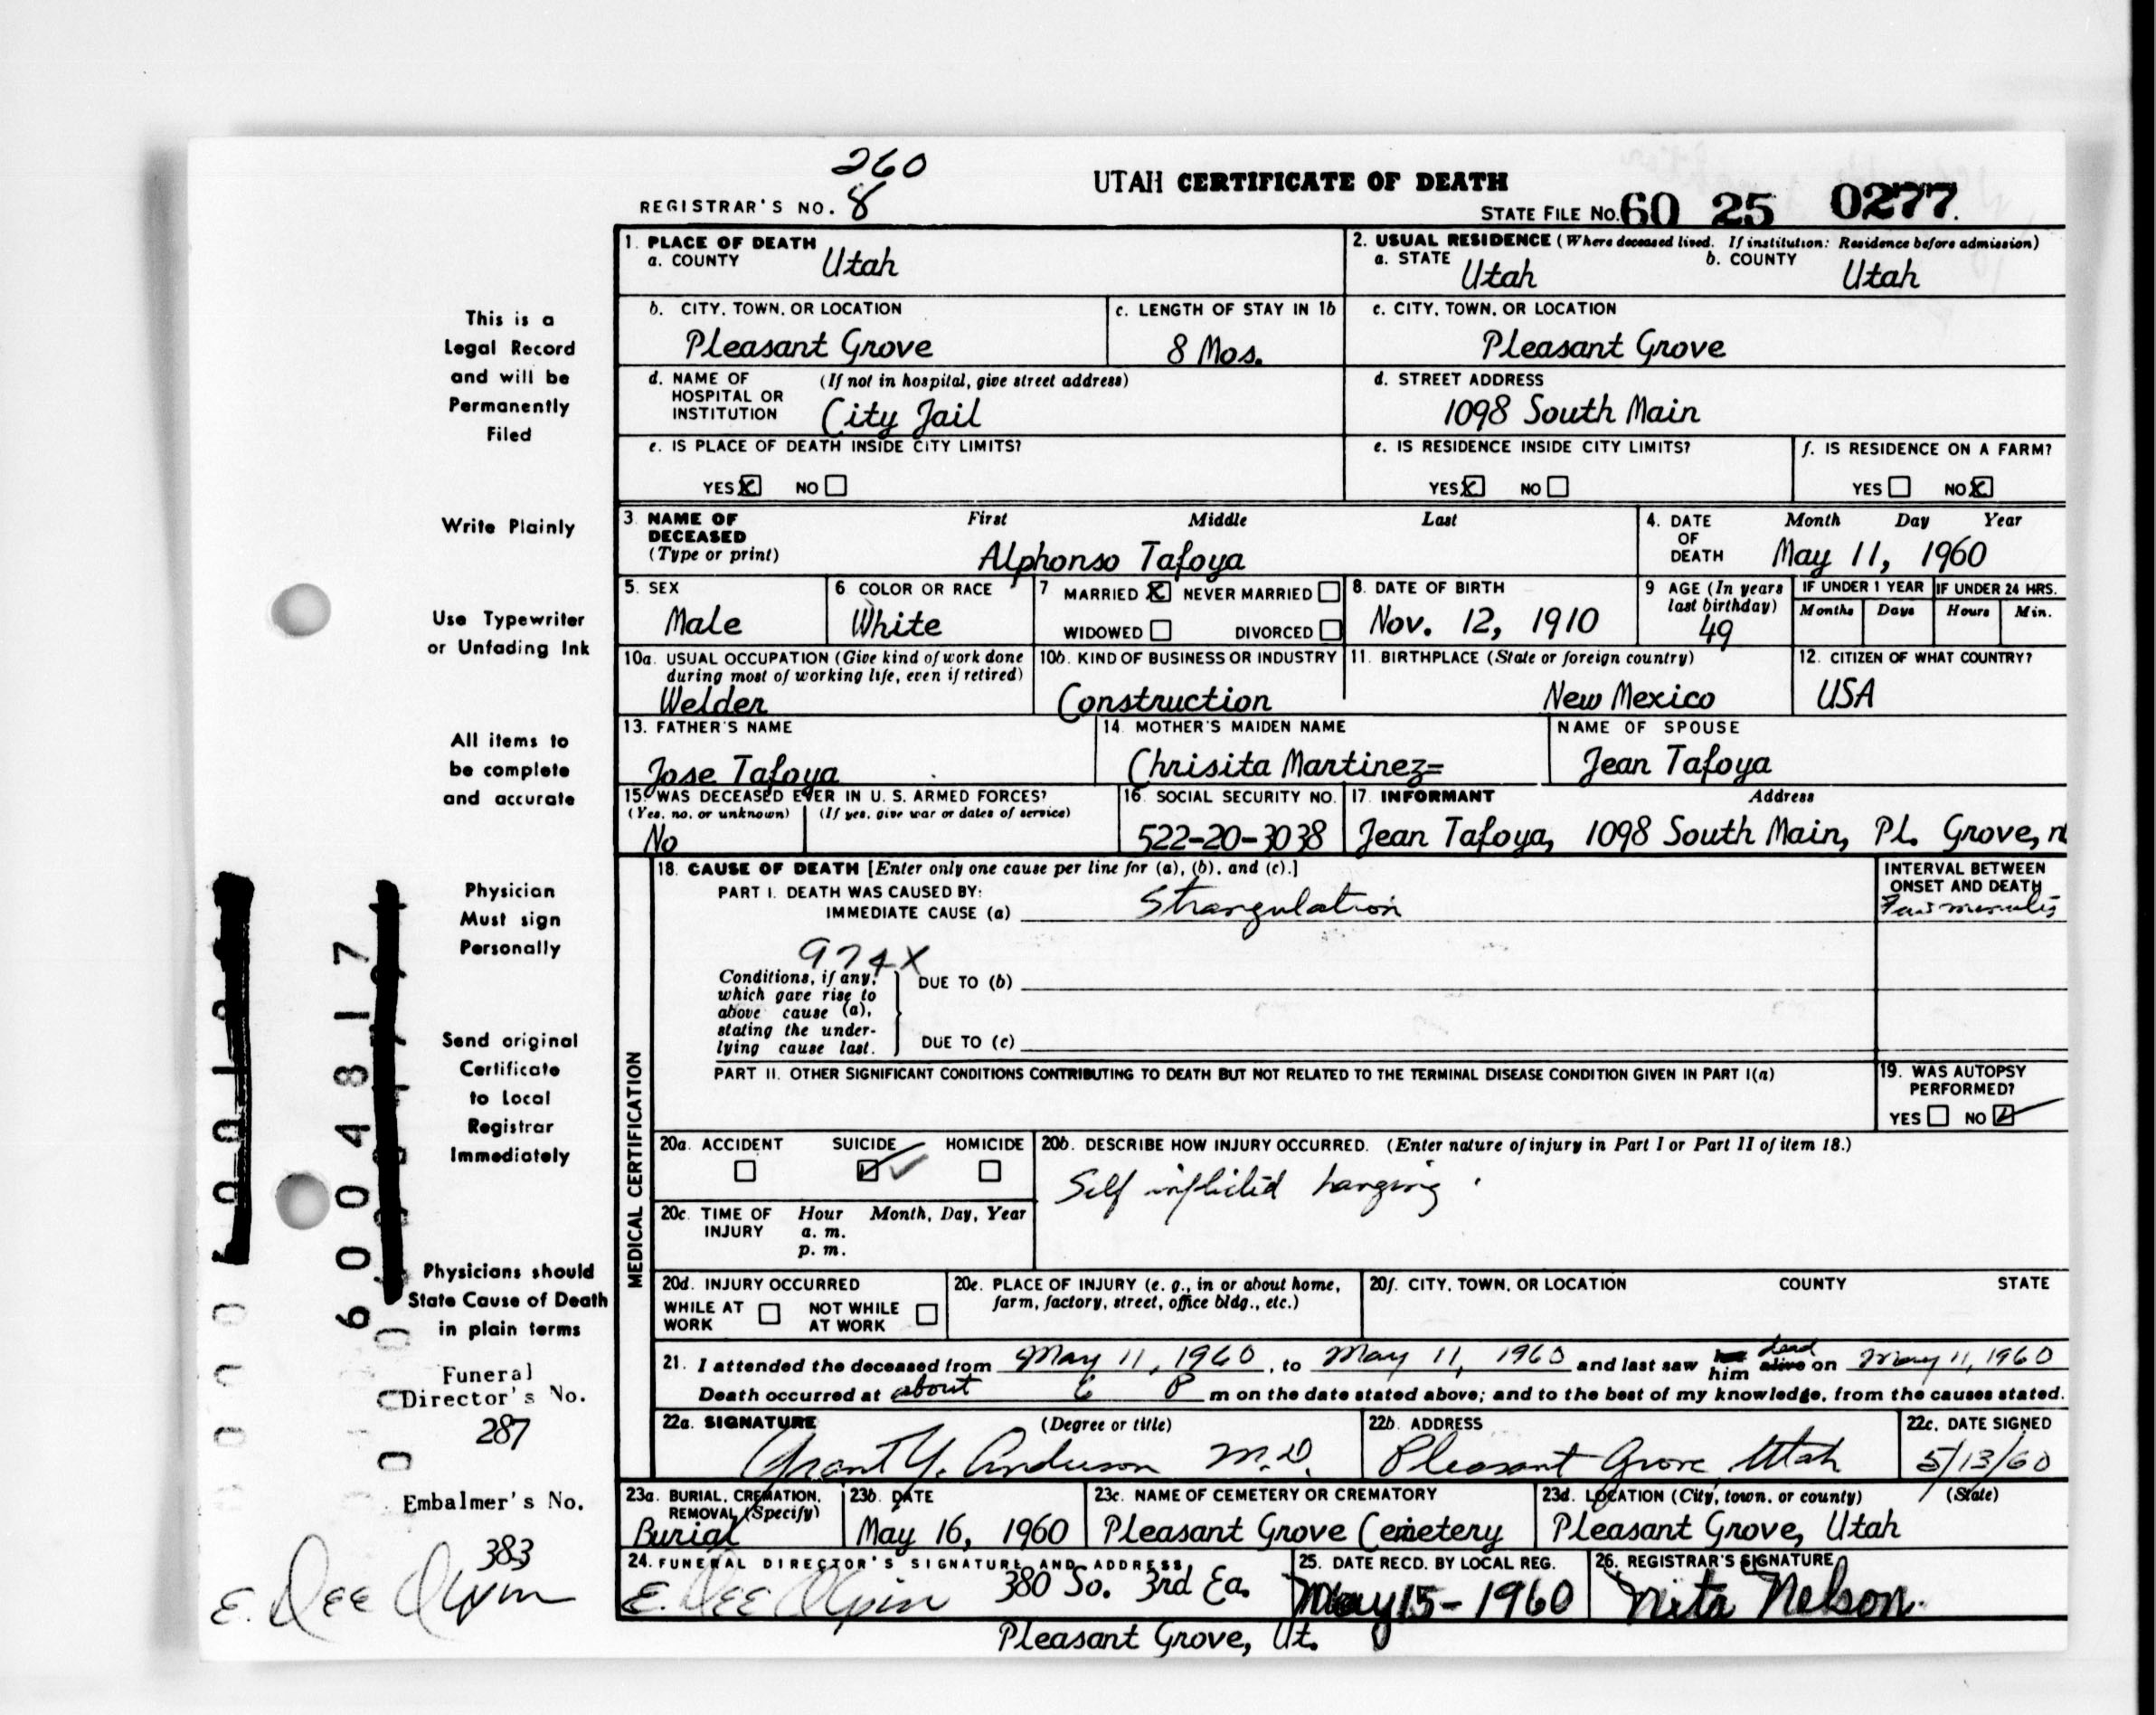 260
REGISTRAR'S NO. 8
UTAH CERTIFICATE OF DEATH
STATE FILE NO. 60 25 0277
1. PLACE OF DEATH
a. COUNTY Utah
2. USUAL RESIDENCE (Where deceased lived. If institution: Residence before admission)
a. STATE Utah b. COUNTY Utah
b. CITY, TOWN, OR LOCATION
Pleasant Grove
c. LENGTH OF STAY IN 1b
8 Mos.
c. CITY, TOWN, OR LOCATION
Pleasant Grove
d. NAME OF HOSPITAL OR INSTITUTION (If not in hospital, give street address)
City Jail
d. STREET ADDRESS
1098 South Main
e. IS PLACE OF DEATH INSIDE CITY LIMITS?
YES X NO
e. IS RESIDENCE INSIDE CITY LIMITS?
YES X NO
f. IS RESIDENCE ON A FARM?
YES NO X
3. NAME OF DECEASED (Type or print) First Middle Last
Alphonso Tafoya
4. DATE OF DEATH Month Day Year
May 11, 1960
5. SEX
Male
6 COLOR OR RACE
White
7 MARRIED X NEVER MARRIED
WIDOWED DIVORCED
8. DATE OF BIRTH
Nov. 12, 1910
9 AGE (In years last birthday)
49
IF UNDER 1 YEAR Months Days
IF UNDER 24 HRS. Hours Min.
10a. USUAL OCCUPATION (Give kind of work done during most of working life, even if retired)
Welder
10b. KIND OF BUSINESS OR INDUSTRY
Construction
11. BIRTHPLACE (State or foreign country)
New Mexico
12. CITIZEN OF WHAT COUNTRY?
USA
13. FATHER'S NAME
Jose Tafoya
14. MOTHER'S MAIDEN NAME
Chrisita Martinez
NAME OF SPOUSE
Jean Tafoya
15. WAS DECEASED EVER IN U. S. ARMED FORCES?
(Yes, no, or unknown) (If yes, give war or dates of service)
No
16. SOCIAL SECURITY NO.
522-20-3038
17. INFORMANT Address
Jean Tafoya, 1098 South Main, Pl. Grove,
18. CAUSE OF DEATH [Enter only one cause per line for (a), (b), and (c).]
PART I. DEATH WAS CAUSED BY:
IMMEDIATE CAUSE (a) Strangulation
INTERVAL BETWEEN ONSET AND DEATH
Few minutes
974X
Conditions, if any, which gave rise to above cause (a), stating the underlying cause last.
DUE TO (b)
DUE TO (c)
PART II. OTHER SIGNIFICANT CONDITIONS CONTRIBUTING TO DEATH BUT NOT RELATED TO THE TERMINAL DISEASE CONDITION GIVEN IN PART I(a)
19. WAS AUTOPSY PERFORMED?
YES NO
20a. ACCIDENT SUICIDE HOMICIDE
20b. DESCRIBE HOW INJURY OCCURRED. (Enter nature of injury in Part I or Part II of item 18.)
Self inflicted hanging
20c. TIME OF INJURY Hour Month, Day, Year
a. m.
p. m.
20d. INJURY OCCURRED
WHILE AT WORK NOT WHILE AT WORK
20e. PLACE OF INJURY (e. g., in or about home, farm, factory, street, office bldg., etc.)
20f. CITY, TOWN, OR LOCATION COUNTY STATE
21. I attended the deceased from May 11, 1960, to May 11, 1960 and last saw him dead alive on May 11, 1960
Death occurred at about 6 P m on the date stated above; and to the best of my knowledge, from the causes stated.
22a. SIGNATURE (Degree or title)
Grant Y. Anderson M.D.
22b. ADDRESS
Pleasant Grove Utah
22c. DATE SIGNED
5/13/60
23a. BURIAL, CREMATION, REMOVAL (Specify)
Burial
23b. DATE
May 16, 1960
23c. NAME OF CEMETERY OR CREMATORY
Pleasant Grove Cemetery
23d. LOCATION (City, town, or county) (State)
Pleasant Grove, Utah
24. FUNERAL DIRECTOR'S SIGNATURE AND ADDRESS
E. Dee Olpin 380 So. 3rd Ea.
Pleasant Grove, Ut.
25. DATE RECD. BY LOCAL REG.
May 15-1960
26. REGISTRAR'S SIGNATURE
Nita Nelson
MEDICAL CERTIFICATION
This is a
Legal Record
and will be
Permanently
Filed
Write Plainly
Use Typewriter
or Unfading Ink
All items to
be complete
and accurate
Physician
Must sign
Personally
Send original
Certificate
to Local
Registrar
Immediately
Physicians should
State Cause of Death
in plain terms
Funeral
Director's No.
287
Embalmer's No.
383
E. Dee Olpin
6004817